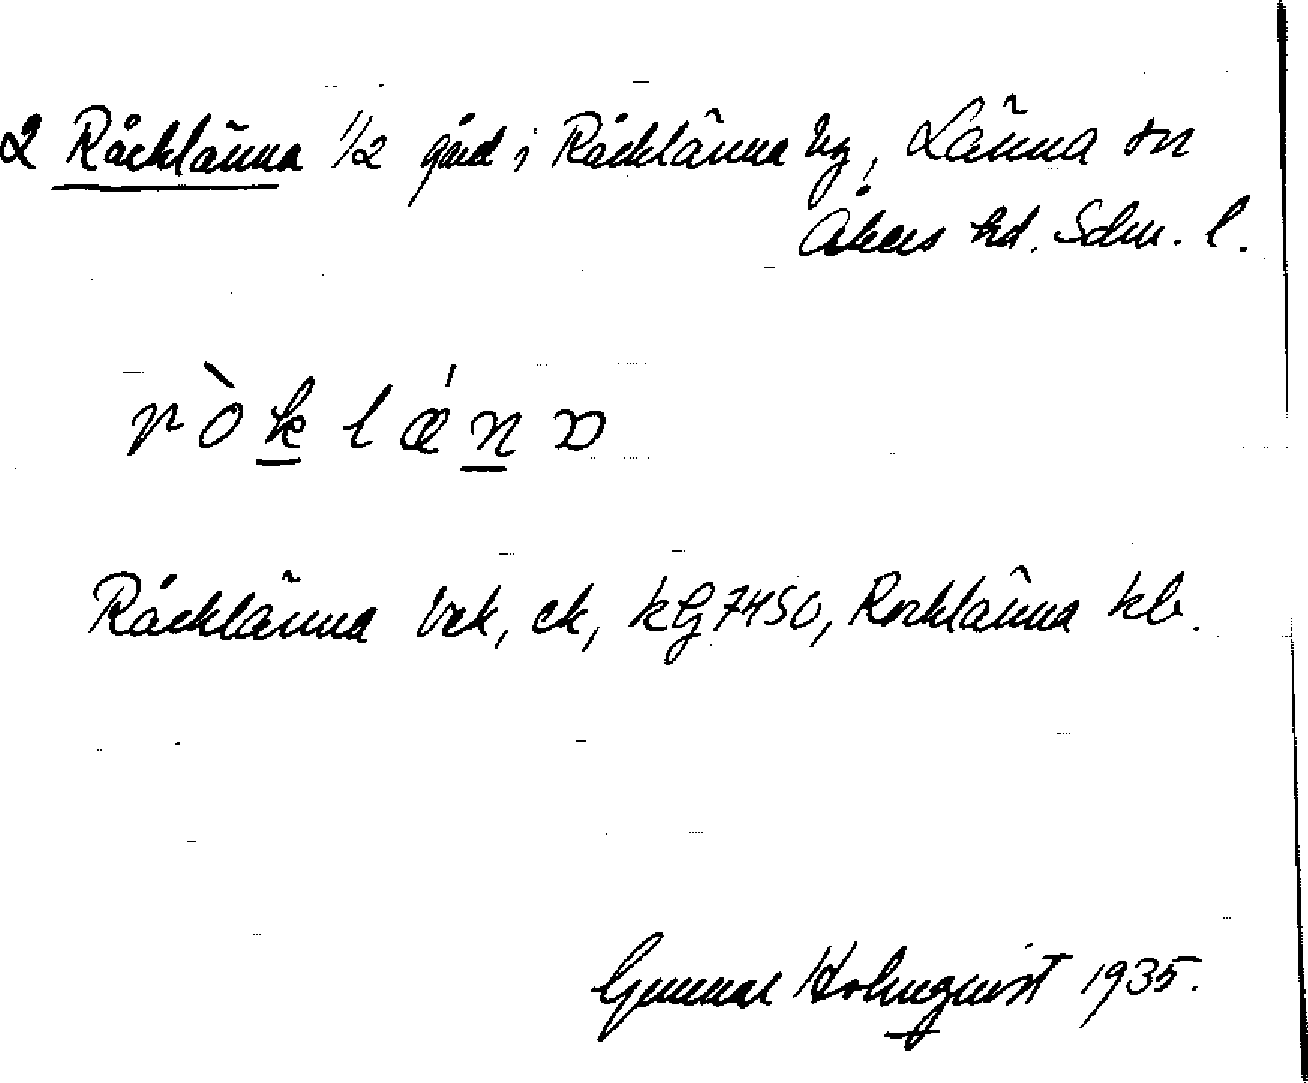 2 Råcklänna 1/2 gård i Råcklänna by, Länna sn
Åkers hd. Sdm. l.
r ò k l ǽ n ɒ
Råcklänna vbk, ek, kG 7450, Rocklänna kb.
Gunnar Holmquist 1935.